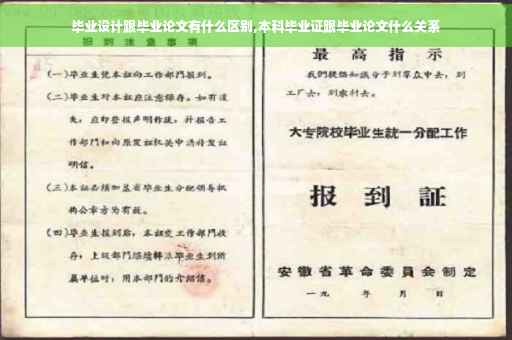 毕业设计跟毕业论文有什么区别,本科毕业证跟毕业论文什么关系
报到注意事项
(一)毕业生凭本证向工作部门报到。
(二)毕业生对本证应注意保存。如有遗
失,应即登报声明作废,并报告工
作部门和向原发证机关申请补发证
明信。
(三)本证必须加盖省毕业生分配领导机
构公章方为有效。
(四)毕业生报到后,本证交工作部门收
存,上级部门继续转派毕业生到所
属单位时,用本部门的介绍信。
最高指示
我们提倡知识分子到群众中去,到
工厂去,到农村去。
大专院校毕业生统一分配工作
报到証
安徽省革命委員会制定
一九 年 月 日